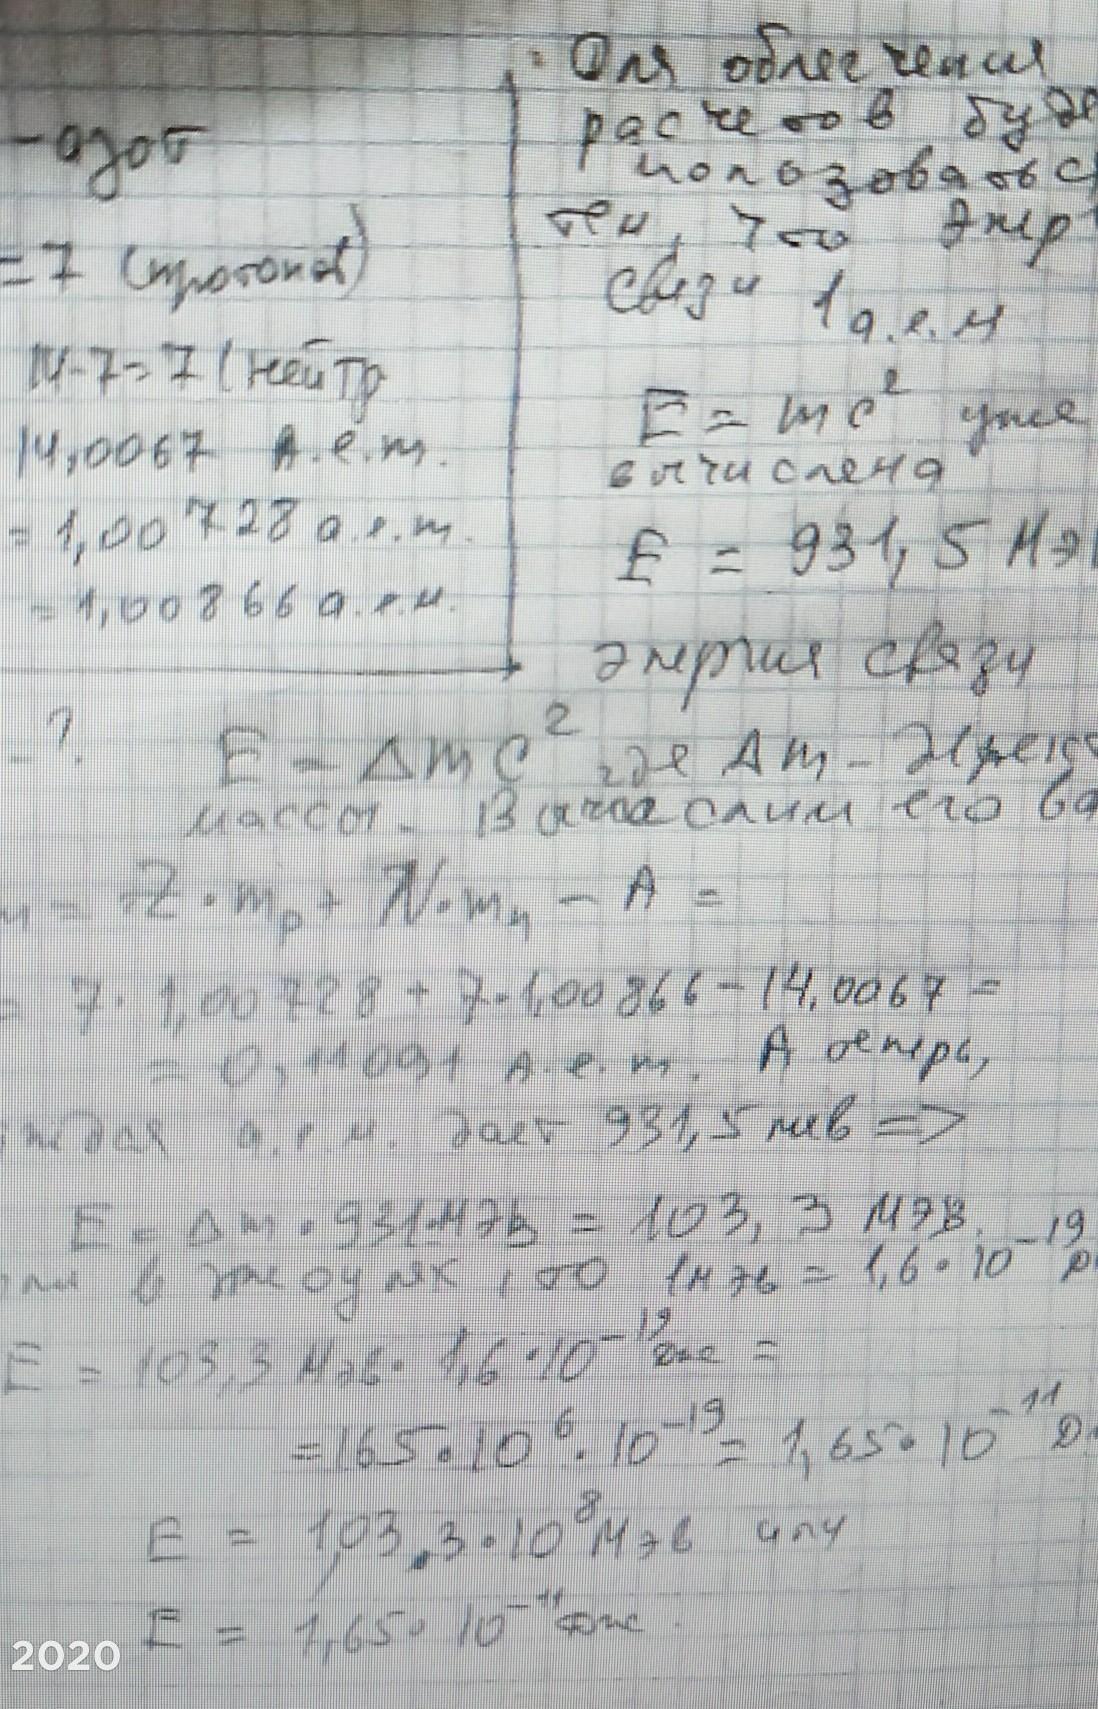 - азот
= 7 (протонов)
14-7=7 (нейтр
14,0067 А.е.m.
= 1,00728 а.е.m.
= 1,00866 а.е.м.
- ?
Для облегчения
расчетов буде
пользоватьс
тем, что энер
связи 1 а.е.м
E = mc² уже
вычислена
E = 931,5 Мэ
энергия связи
E = Δmc² где Δm -
массы. Вычислим его
= Z·mp + N·mn - A =
= 7·1,00728 + 7·1,00866 - 14,0067 =
= 0,11091 А.е.m. А теперь,
а.е.м. дает 931,5 мев =>
E = Δm·931МэВ = 103,3 МэВ.
в джоулях, то 1мэв = 1,6·10⁻¹⁹ Д
E = 103,3 Мэв·1,6·10⁻¹⁹ дж =
= 165·10⁶·10⁻¹⁹ = 1,65·10⁻¹¹ Д
E = 1,03,3·10⁸ Мэв или
E = 1,65·10⁻¹¹ дж.
2020